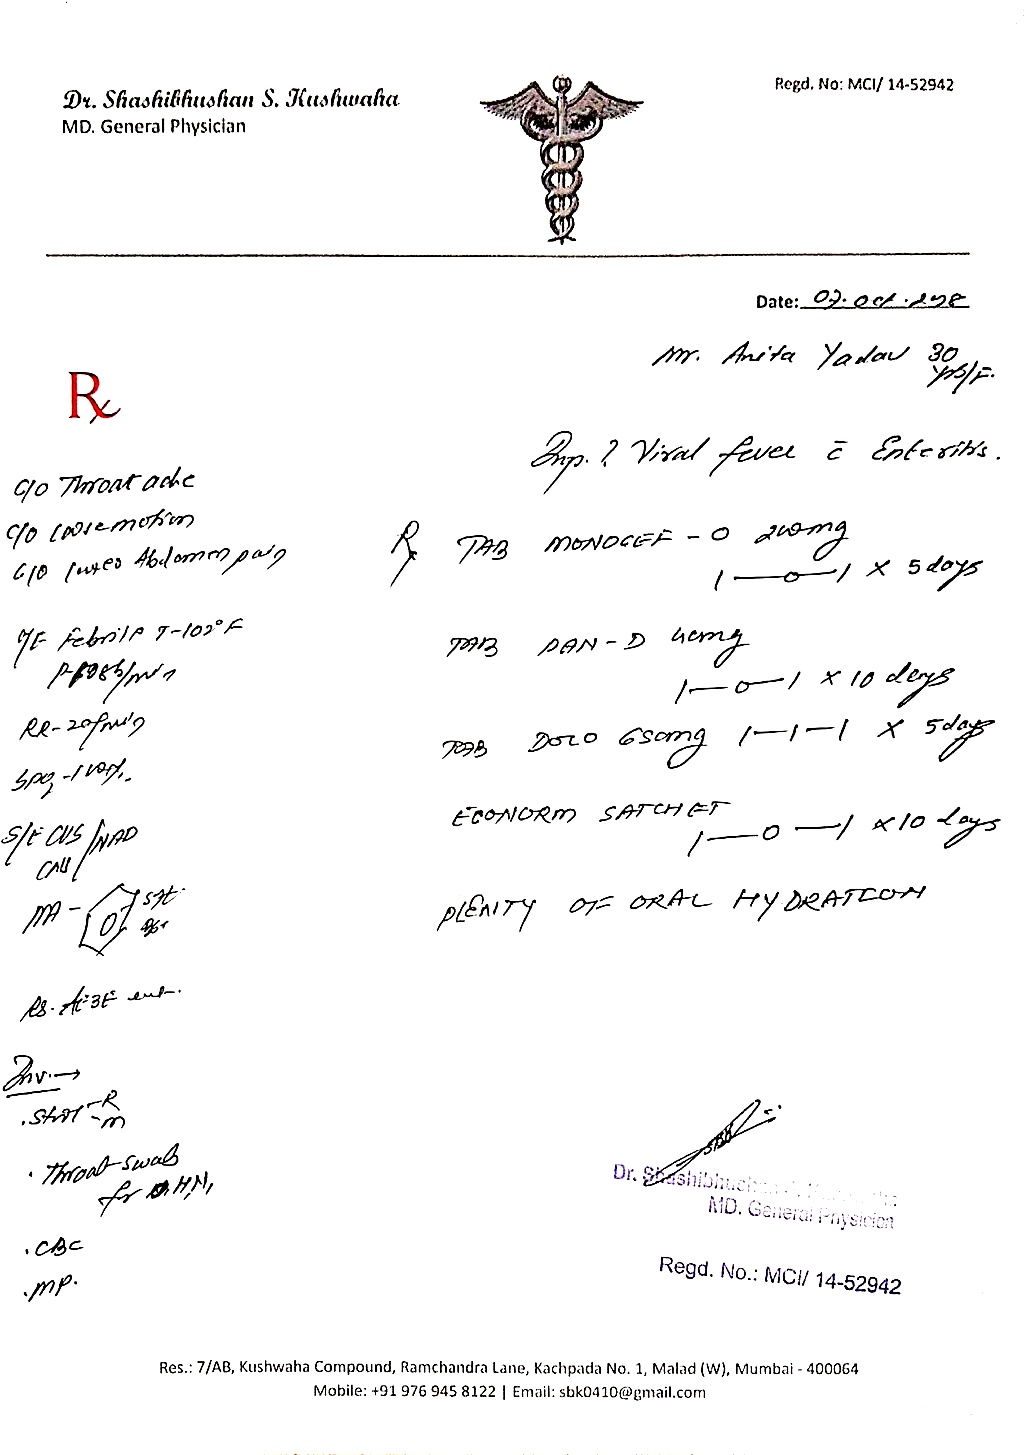 Dr. Shashibhushan S. Kushwaha
MD. General Physician
Regd. No: MCI/ 14-52942
Date: 07. Oct.
Mr. Anita Yadav 30
yrs/F.
Rx
Imp. ? Viral fever c̄ Enteritis.
C/O Throat ache
C/O Loosemotion
C/O Abdomen pain
O/E Febrile T-102°F
RR-20/min
SPO2
S/E CVS/NAD
CNS
P/A -
Rs. AEBE
Inv. →
. Stool -R
-m
. Throat swab
for H1N1
. CBC
. MP.
Rx TAB MONOCEF - O 200mg
1—0—1 X 5 days
TAB PAN-D 40mg
1—0—1 X 10 days
TAB DOLO 650mg 1—1—1 X 5 days
ECONORM SATCHET
1—0—1 X 10 days
PLENTY OF ORAL HYDRATION
Dr. Shashibhushan
MD. General Physician
Regd. No.: MCI/ 14-52942
Res.: 7/AB, Kushwaha Compound, Ramchandra Lane, Kachpada No. 1, Malad (W), Mumbai - 400064
Mobile: +91 976 945 8122 | Email: sbk0410@gmail.com